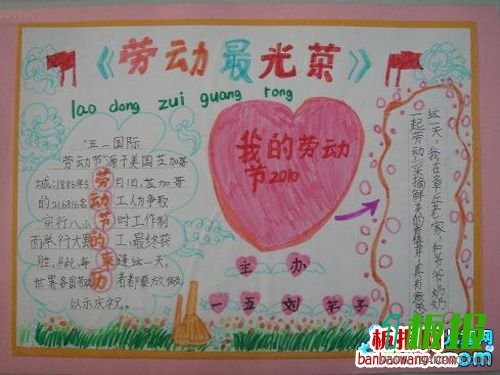 《劳动最光荣》
lao dong zui guang rong
五一国际
劳动节源于美国芝加哥
城,1886年5月1日,芝加哥
的216816名工人为争取
实行八小时工作制
而举行大罢工,最终获
胜,
世界各国
以示庆祝。
劳动节的来历
我的劳动
节2010
主办
一五 刘 子
这一天,我在章丘老家,和爷爷奶奶
一起劳动
板报
banbaowang.com